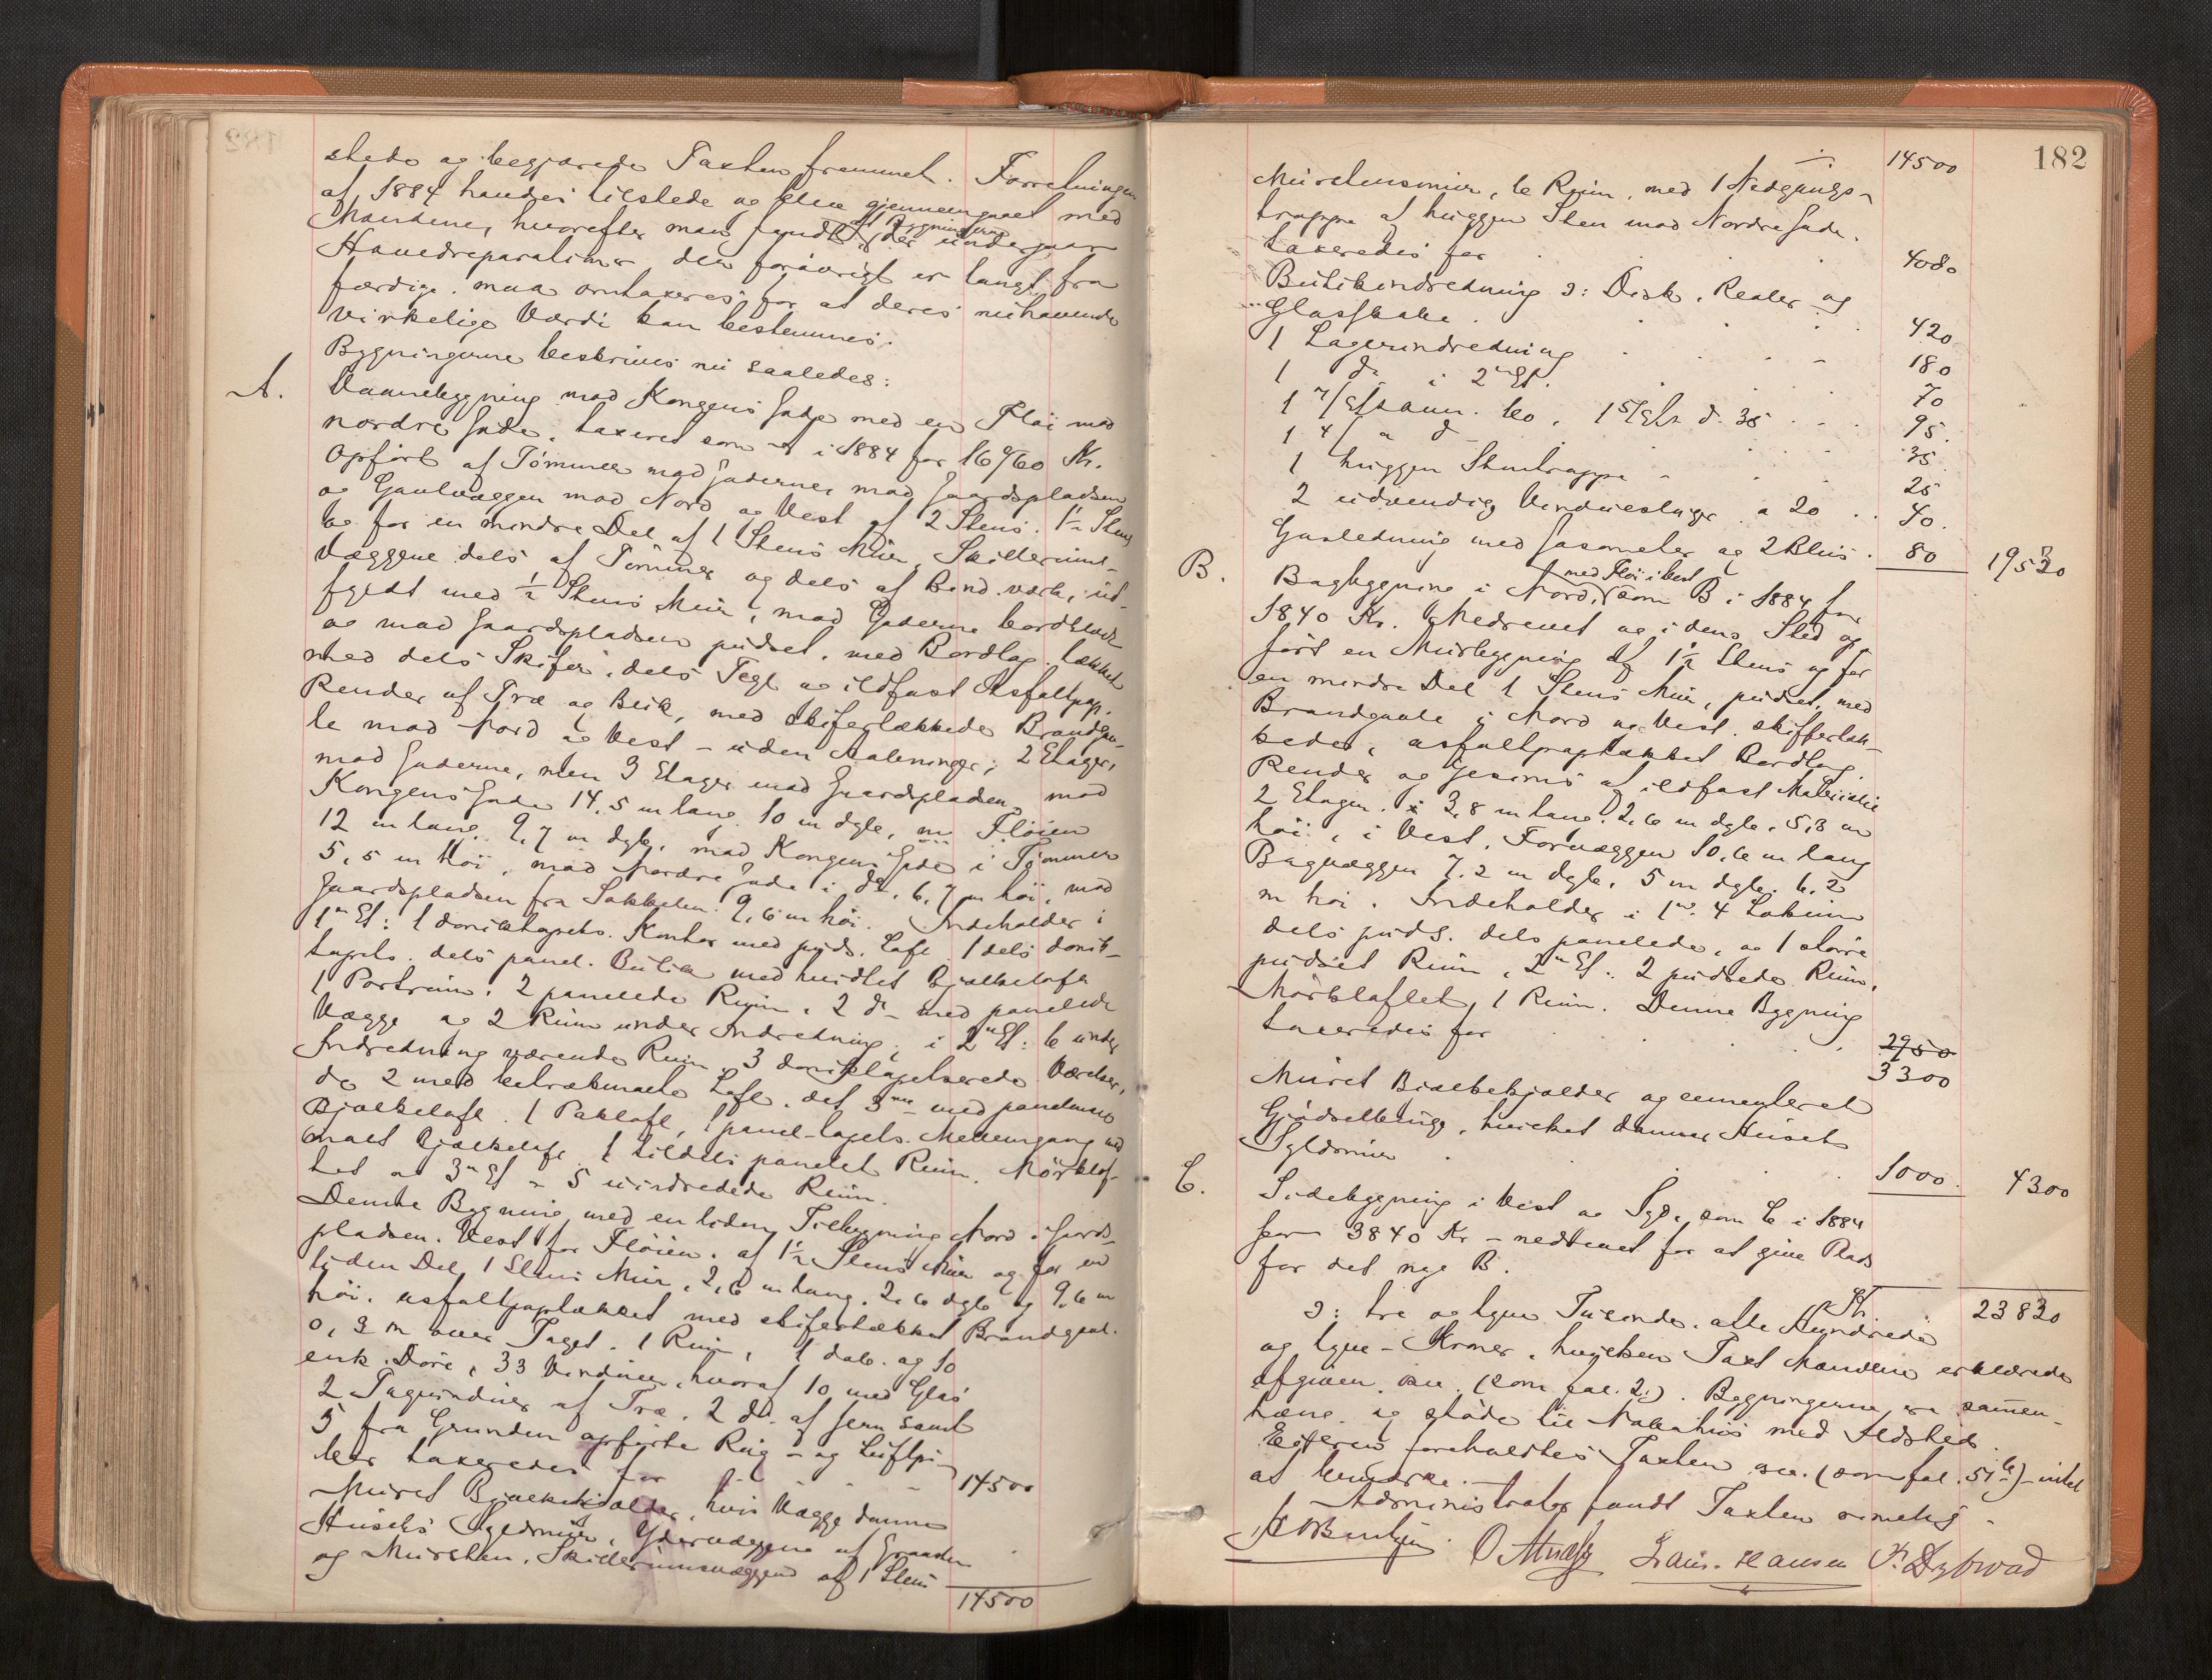 stede og begjærede Taxten fremmet. Forretningen
af 1884 havdes tilstede og blev gjennemgaaet med
Mændene, hvorefter man fandt at Bygningerne, der undergaar
Hovedreparationer der forøvrigt er langt fra
færdige, maa omtaxeres for at deres nuhavende
virkelige Værdi kan bestemmes.
Bygningerne beskrives nu saaledes:
A. Vaanebygning mod Kongens Gade med en Fløi mod
nordre Gade, taxeret som A i 1884 for 16960 Kr.
Opført af Tømmer mod Gaderne, mod Gaardspladsen
og Gavlvæggen mod Nord og Vest af 2 Stens, 1½ Stens
og for en mindre Del af 1 Stens Mur, Skillerums-
væggene dels af Tømmer og dels af Bindværk, ud-
fyldt med ½ Stens Mur, mod Gaderne bordklædt
og mod Gaardspladsen pudset, med Bordtag, tækket
med dels Skifer, dels Tegl og ildfast Asfaltpap.
Render af Træ og Blik, med skifertækkede Brandgav-
le mod Nord og Vest – uden Aabninger; 2 Etager,
mod Gaderne, men 3 Etager mod Gaardspladsen, mod
Kongens Gade 14,5 m lang 10 m dyb, Fløien
12 m lang, 9,7 m dyb, mod Kongens Gade i Tømmer
5,5 m høi, mod Nordre Gade i do. 6,7 m høi, mod
Gaardspladsen fra Sokkelen 9,6 m høi. Indeholder i
1ste Et: 1 donisktapets. Kontor med puds. Loft 1 dels donisk-
tapets. dels panel. Butik med hvidtet Bjælkeloft
1 Portrum, 2 panelede Rum, 2 do med panelede
Vægge og 2 Rum under Indredning; i 2en Et: 6 under
Indredning værende Rum 3 donisktapetserede Værelser,
de 2 med betrækmalte Loft, det 3die med panelmalt
Bjælkeloft, 1 Pakloft, 1 panel-tapets. Mellemgang med
malt Bjælkeloft, 1 tildels panelet Rum. Mørklof-
tet og 3e Et 5 uindredede Rum.
Denne Bygning med en liden Tilbygning Nord i Gaards-
pladsen, Vest for Fløien, af 1½ Stens Mur og for en
liden Del 1 Stens Mur, 2,6 m lang, 2,6 dyb og 9,6 m
høi, asfaltpaptækket med skifertækket Brandgavl
0,3 m over Taget, 1 Rum, 1 dob. og 10
enk. Døre, 33 Vinduer, hvoraf 10 med Glas
2 Tagvinduer af Træ, 2 do. af Jern samt
5 fra Grunden opførte Røg- og Luftpi-
ber taxeredes for 14500
Muret Bjælkekjælder, hvis Vægge danner
Husets Syldmur, Ydervæggene af Graasten
og Mursten, Skillerumsvæggene af 1 Stens
14500
182
14500
Murstensmur, 6 Rum, med 1 Nedgangs-
trappe af huggen Sten mod Nordre Gade.
taxeredes for 4080
Butikindredning ɔ: Disk, Realer og
Glasskabe 420
1 Lagerindredning 180
1 do i 2en Et. 70
1 7/ Etkamin 60, 1 5/ Et d. 35 95
1 4/ a d 35
1 huggen Stentrappe 25
2 udvendig Vindueslager a 20 40.
Gasledning med Gasometer og 2 Blus 80 19520
B. Bagbygning i Nord med Fløi i Vest som B i 1884 for
1840 Kr. Nedrevet og i dens Sted op-
ført en Murbygning af 1½ Stens og for
en mindre Del 1 Stens Mur, pudset, med
Brandgavle i Nord og Vest, skiffertæk-
kede, asfaltpaptækket Bordtag.
Render og Gesims af ildfast Materiale
2 Etager. 3,8 m lang, 2,6 m dyb, 5,3 m
høi, i Vest, Forvæggen 10,6 m lang
Bagvæggen 7.2 m dyb, 5 m dyb. 6.2
m høi. Indeholder i 1ste 4 Lokum
dels puds. dels panelede, og 1 større
pudset Rum, 2en Et: 2 pudsede Rum,
Mørkloftet, 1 Rum. Denne Bygning
taxeredes for 2950
3300
Muret Bjælkekjælder og cementeret
Gjødselbinge, hvilket danner Husets
Syldmur 1000. 4300
C. Sidebygning i Vest og Syd, som C i 1884
for 3840 Kr – nedrevet for at give Plads
for det nye B.
Kr. 23820
ɔ: tre og tyve Tusende, otte Hundrede
og tyve – Kroner, hvilken Taxt Mændene erklærede
afgiven osv. (som fol. 2). Bygningerne er sammen-
hæng. og støder til Nabohus med Ildsted.
Eieren foreholdtes Taxten osv. (som fol. 51b) – intet
at bemærke.
Administrator fandt Taxten rimelig.
O Musæg Laur. Hansen Fr. Dybwad